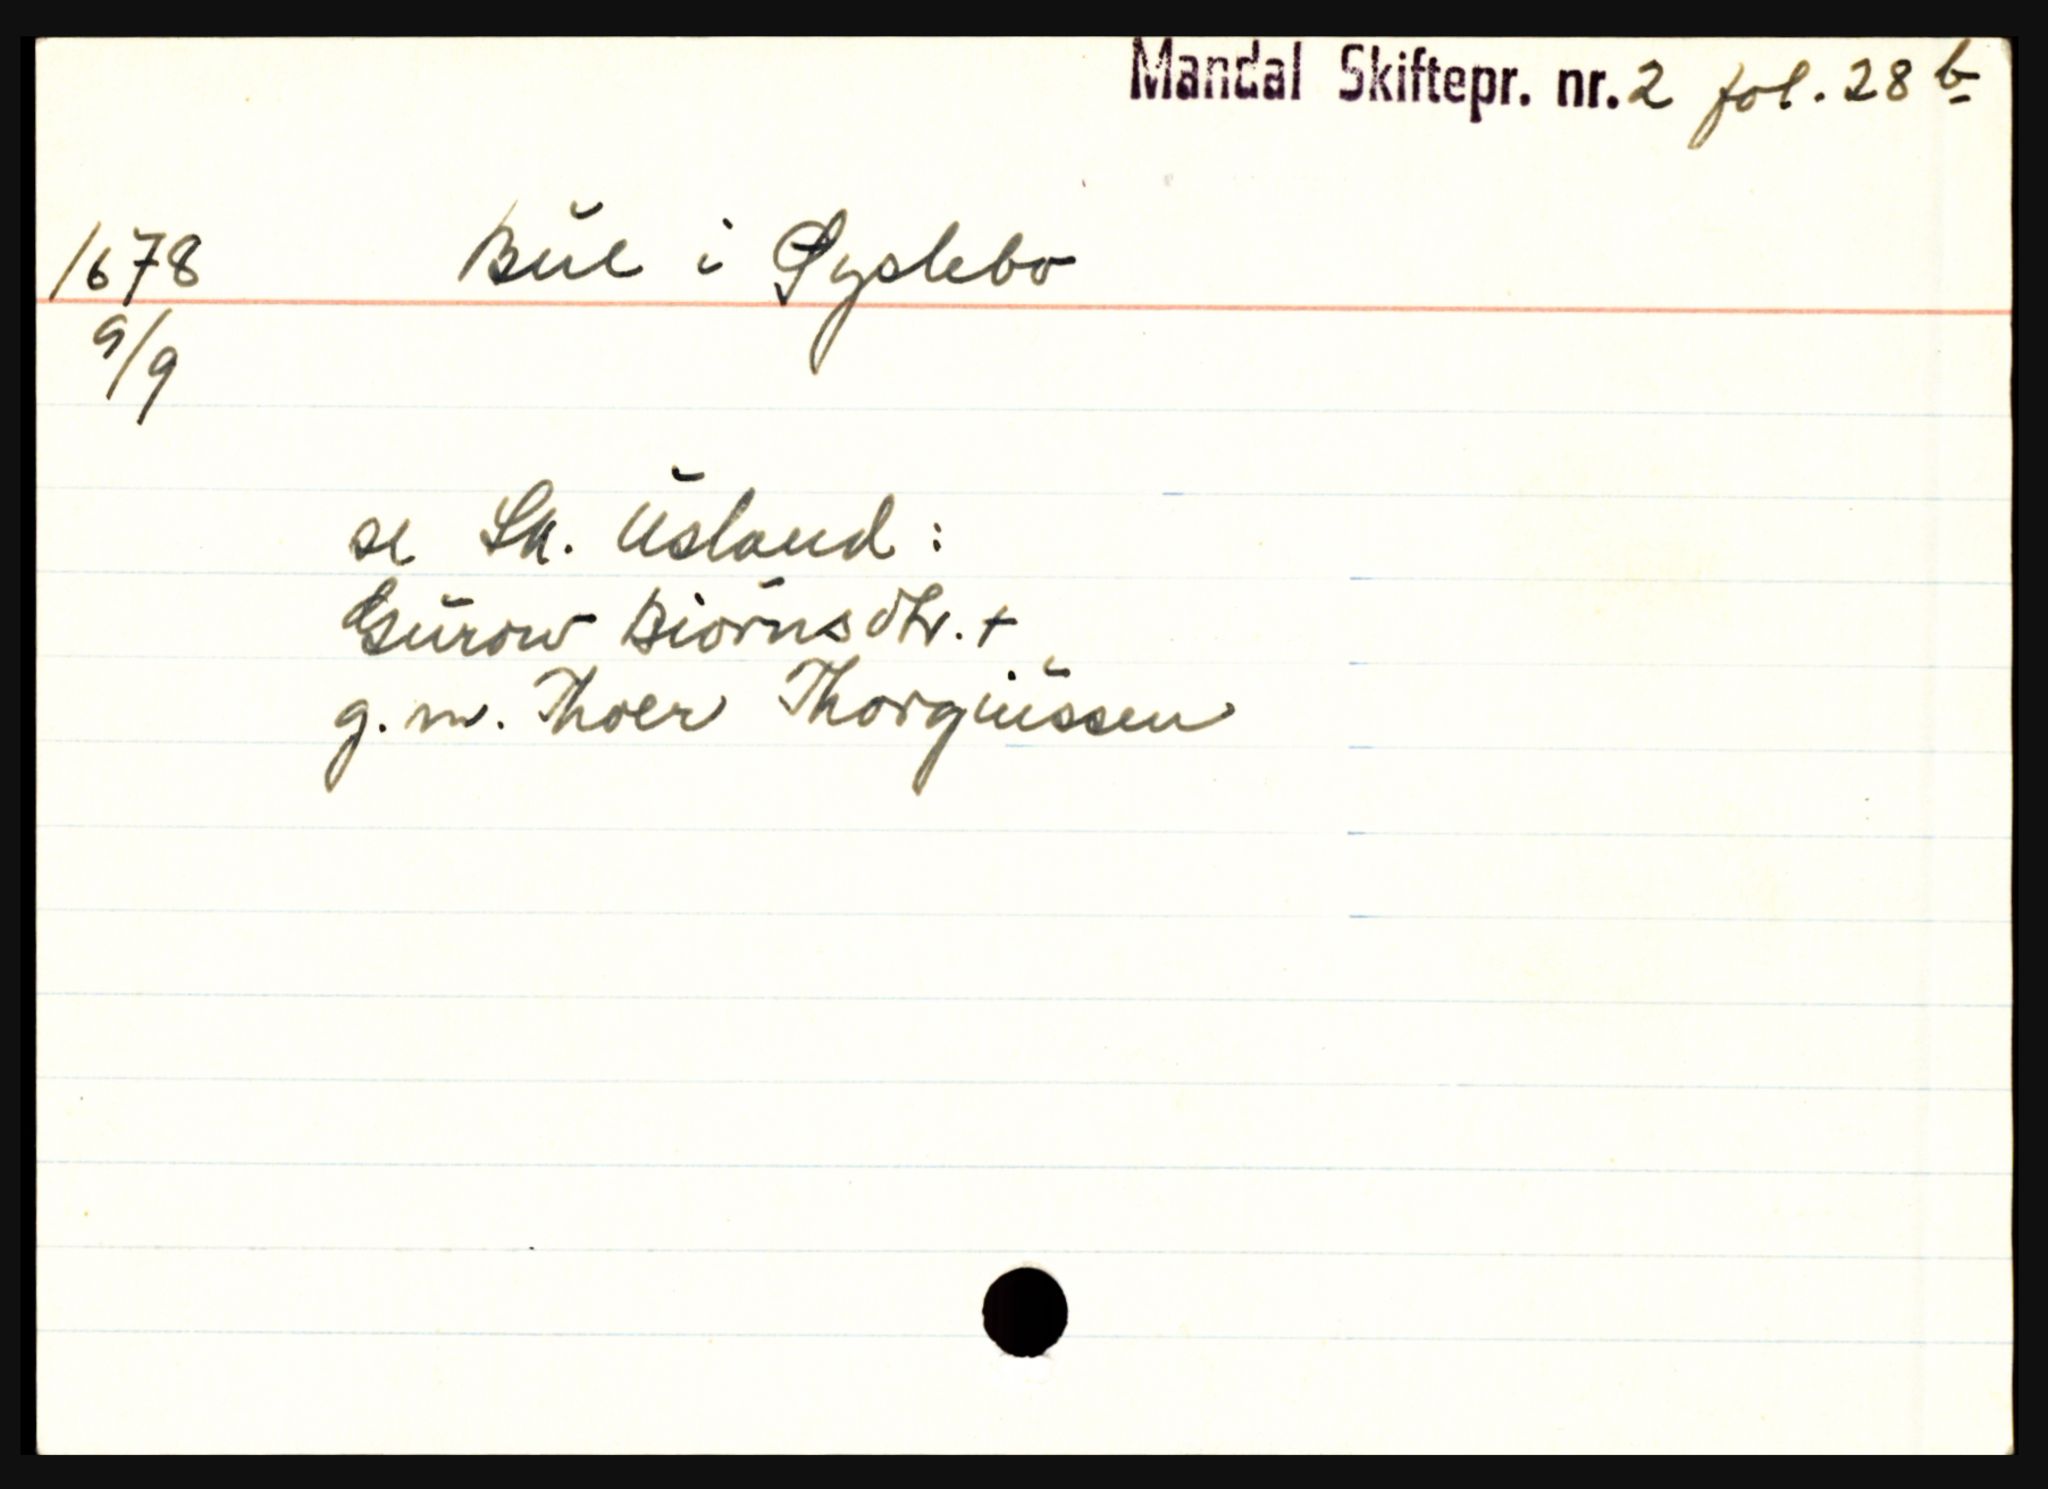 Mandal Skiftepr. nr. 2 fol. 28 b
1678 Büe i Øyslebo
9/9
se Sk. Üsland:
Gürow Biörnsdtr. +
g. m. Thoer Thorgiüssen